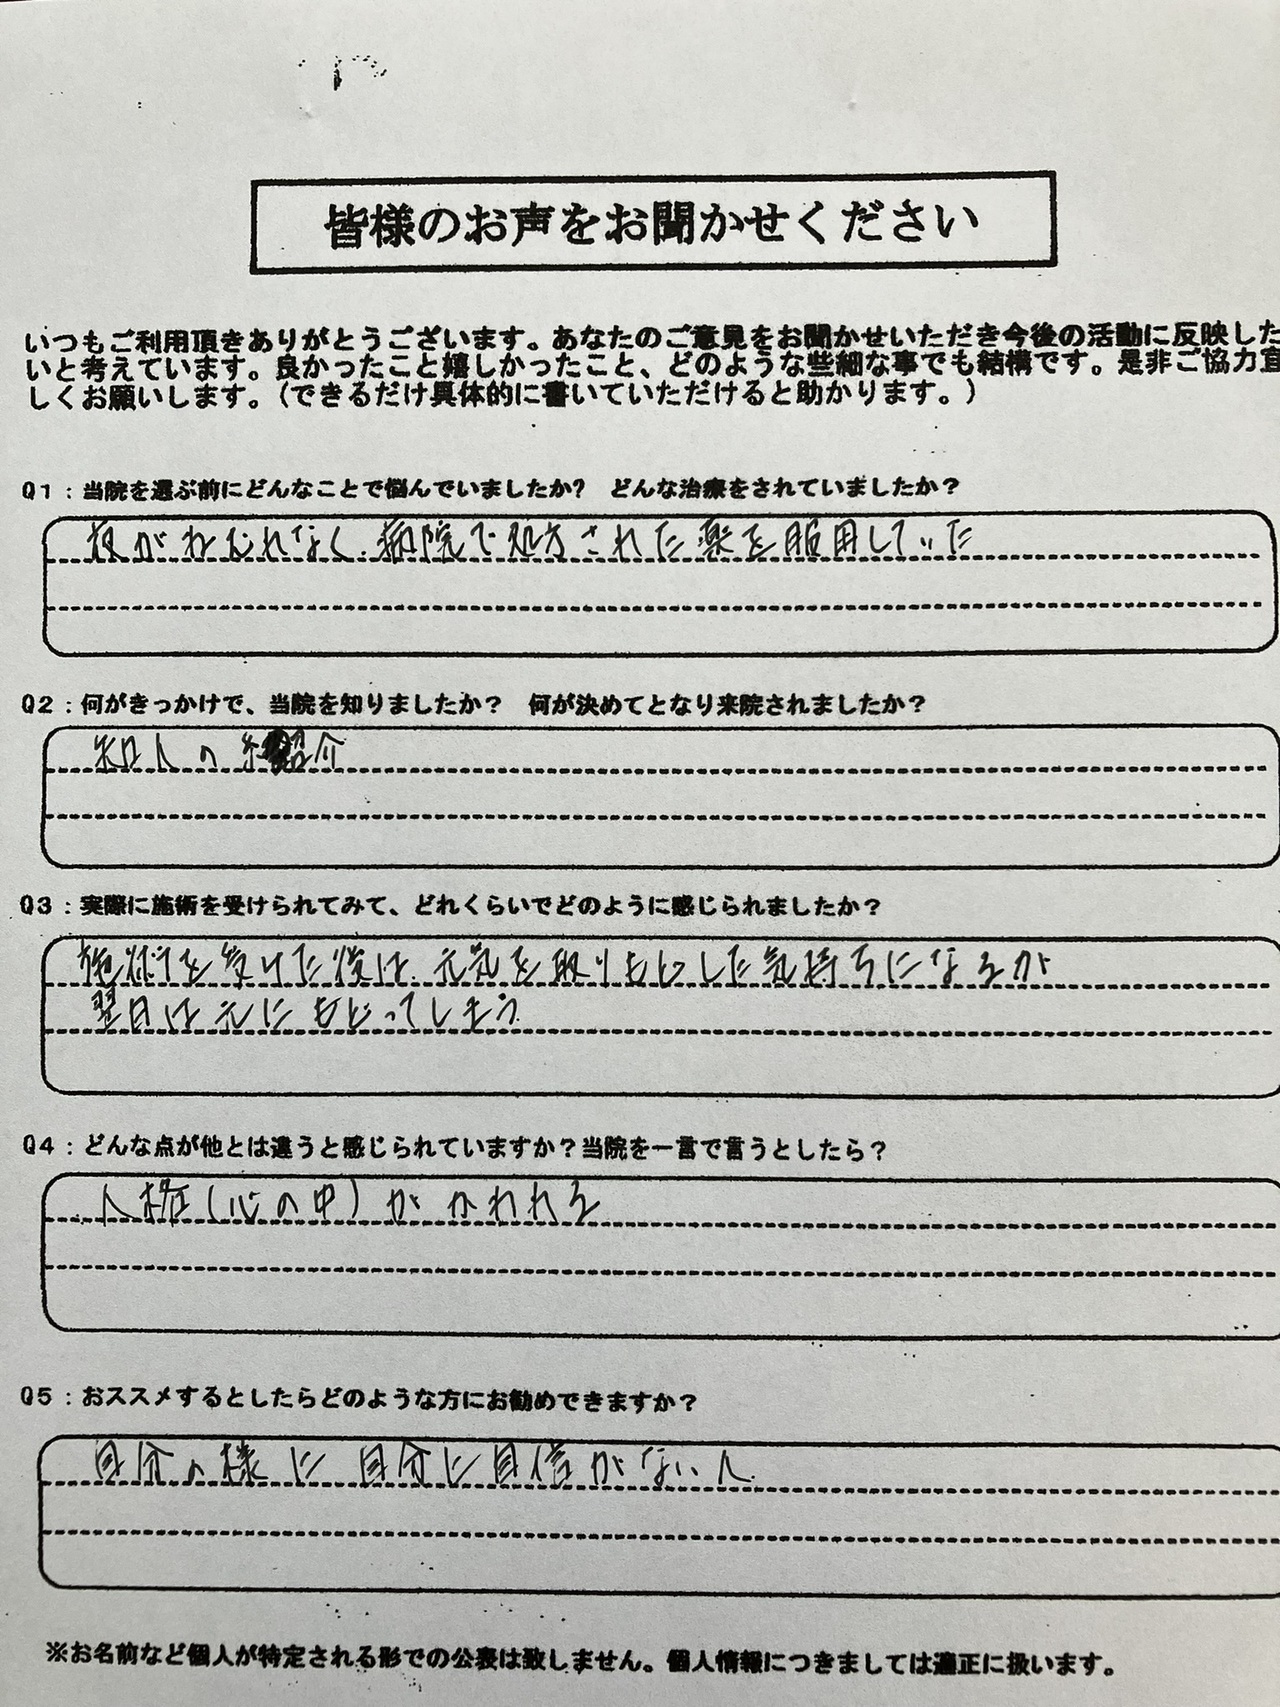 皆様のお声をお聞かせください
いつもご利用頂きありがとうございます。あなたのご意見をお聞かせいただき今後の活動に反映した
いと考えています。良かったこと嬉しかったこと、どのような些細な事でも結構です。是非ご協力宜
しくお願いします。（できるだけ具体的に書いていただけると助かります。）
Q1：当院を選ぶ前にどんなことで悩んでいましたか？　どんな治療をされていましたか？
夜がねむれなく、病院で処方された薬を服用していた
Q2：何がきっかけで、当院を知りましたか？　何が決めてとなり来院されましたか？
知人の紹介
Q3：実際に施術を受けられてみて、どれくらいでどのように感じられましたか？
施術を受けた後は、元気を取りもどした気持ちになるが
翌日は元にもどってしまう
Q4：どんな点が他とは違うと感じられていますか？当院を一言で言うとしたら？
人格（心の中）がかわれる
Q5：おススメするとしたらどのような方にお勧めできますか？
自分の様に自分に自信がない人
※お名前など個人が特定される形での公表は致しません。個人情報につきましては適正に扱います。